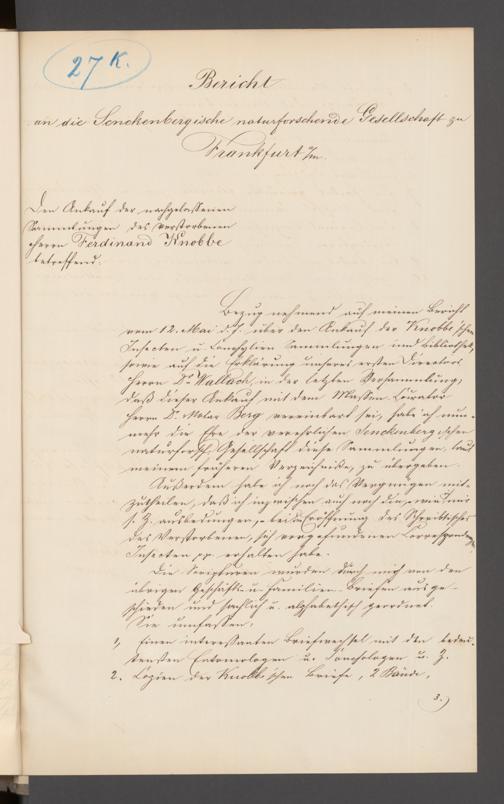 27 K.
Bericht
an die Senckenbergische naturforschende Gesellschaft zu
Frankfurt a/m.
Den Ankauf der nachgelassenen
Sammlungen des verstorbenen
Herrn Ferdinand Knobbe
betreffend.
Bezug nehmend auf meinen Bericht
vom 12. Mai d. J. über den Ankauf der Knobbe'schen
Insecten u. Conchylien Sammlungen und Bibliothek,
sowie auf die Erklärung unseres ersten Directors
Herrn Dr. Wallach, in der letzten Versammlung,
daß dieser Ankauf mit dem Massen Curator
Herrn Dr. Molar Berg vereinbart sei, habe ich nun-
mehr die Ehre der verehrlichen Senckenbergischen
naturforsch. Gesellschaft diese Sammlungen, laut
meinem früheren Verzeichnisse, zu übergeben.
Außerdem habe ich noch das Vergnügen mit-
zutheilen, daß ich inzwischen auch noch die, von mir
s. Z. ausbedungen, bei der Eröffnung des Schreibtisches
des Verstorbenen, sich vorgefundenen Correspondenz
Insecten pp. erhalten habe.
Die Scripturen wurden durch mich von den
übrigen Geschäfts- u. Familien Briefen ausge-
schieden und sachlich u. alphabethisch geordnet.
Sie umfassen:
1, Einen interessanten Briefwechsel mit den bedeu-
tensten Entomologen u. Conchologen u. Z.
2. Copien der Knobbe'schen Briefe, 2 Bände,
3.)